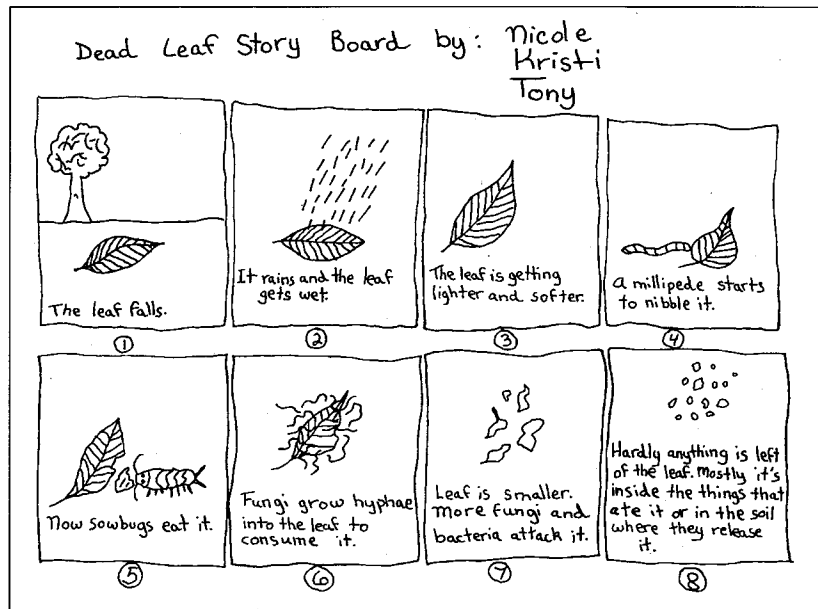 Dead Leaf Story Board by: Nicole
Kristi
Tony
The leaf falls.
1
It rains and the leaf
gets wet.
2
The leaf is getting
lighter and softer.
3
A millipede starts
to nibble it.
4
Now sowbugs eat it.
5
Fungi grow hyphae
into the leaf to
consume it.
6
Leaf is smaller.
More fungi and
bacteria attack it.
7
Hardly anything is left
of the leaf. Mostly it's
inside the things that
ate it or in the soil
where they release
it.
8